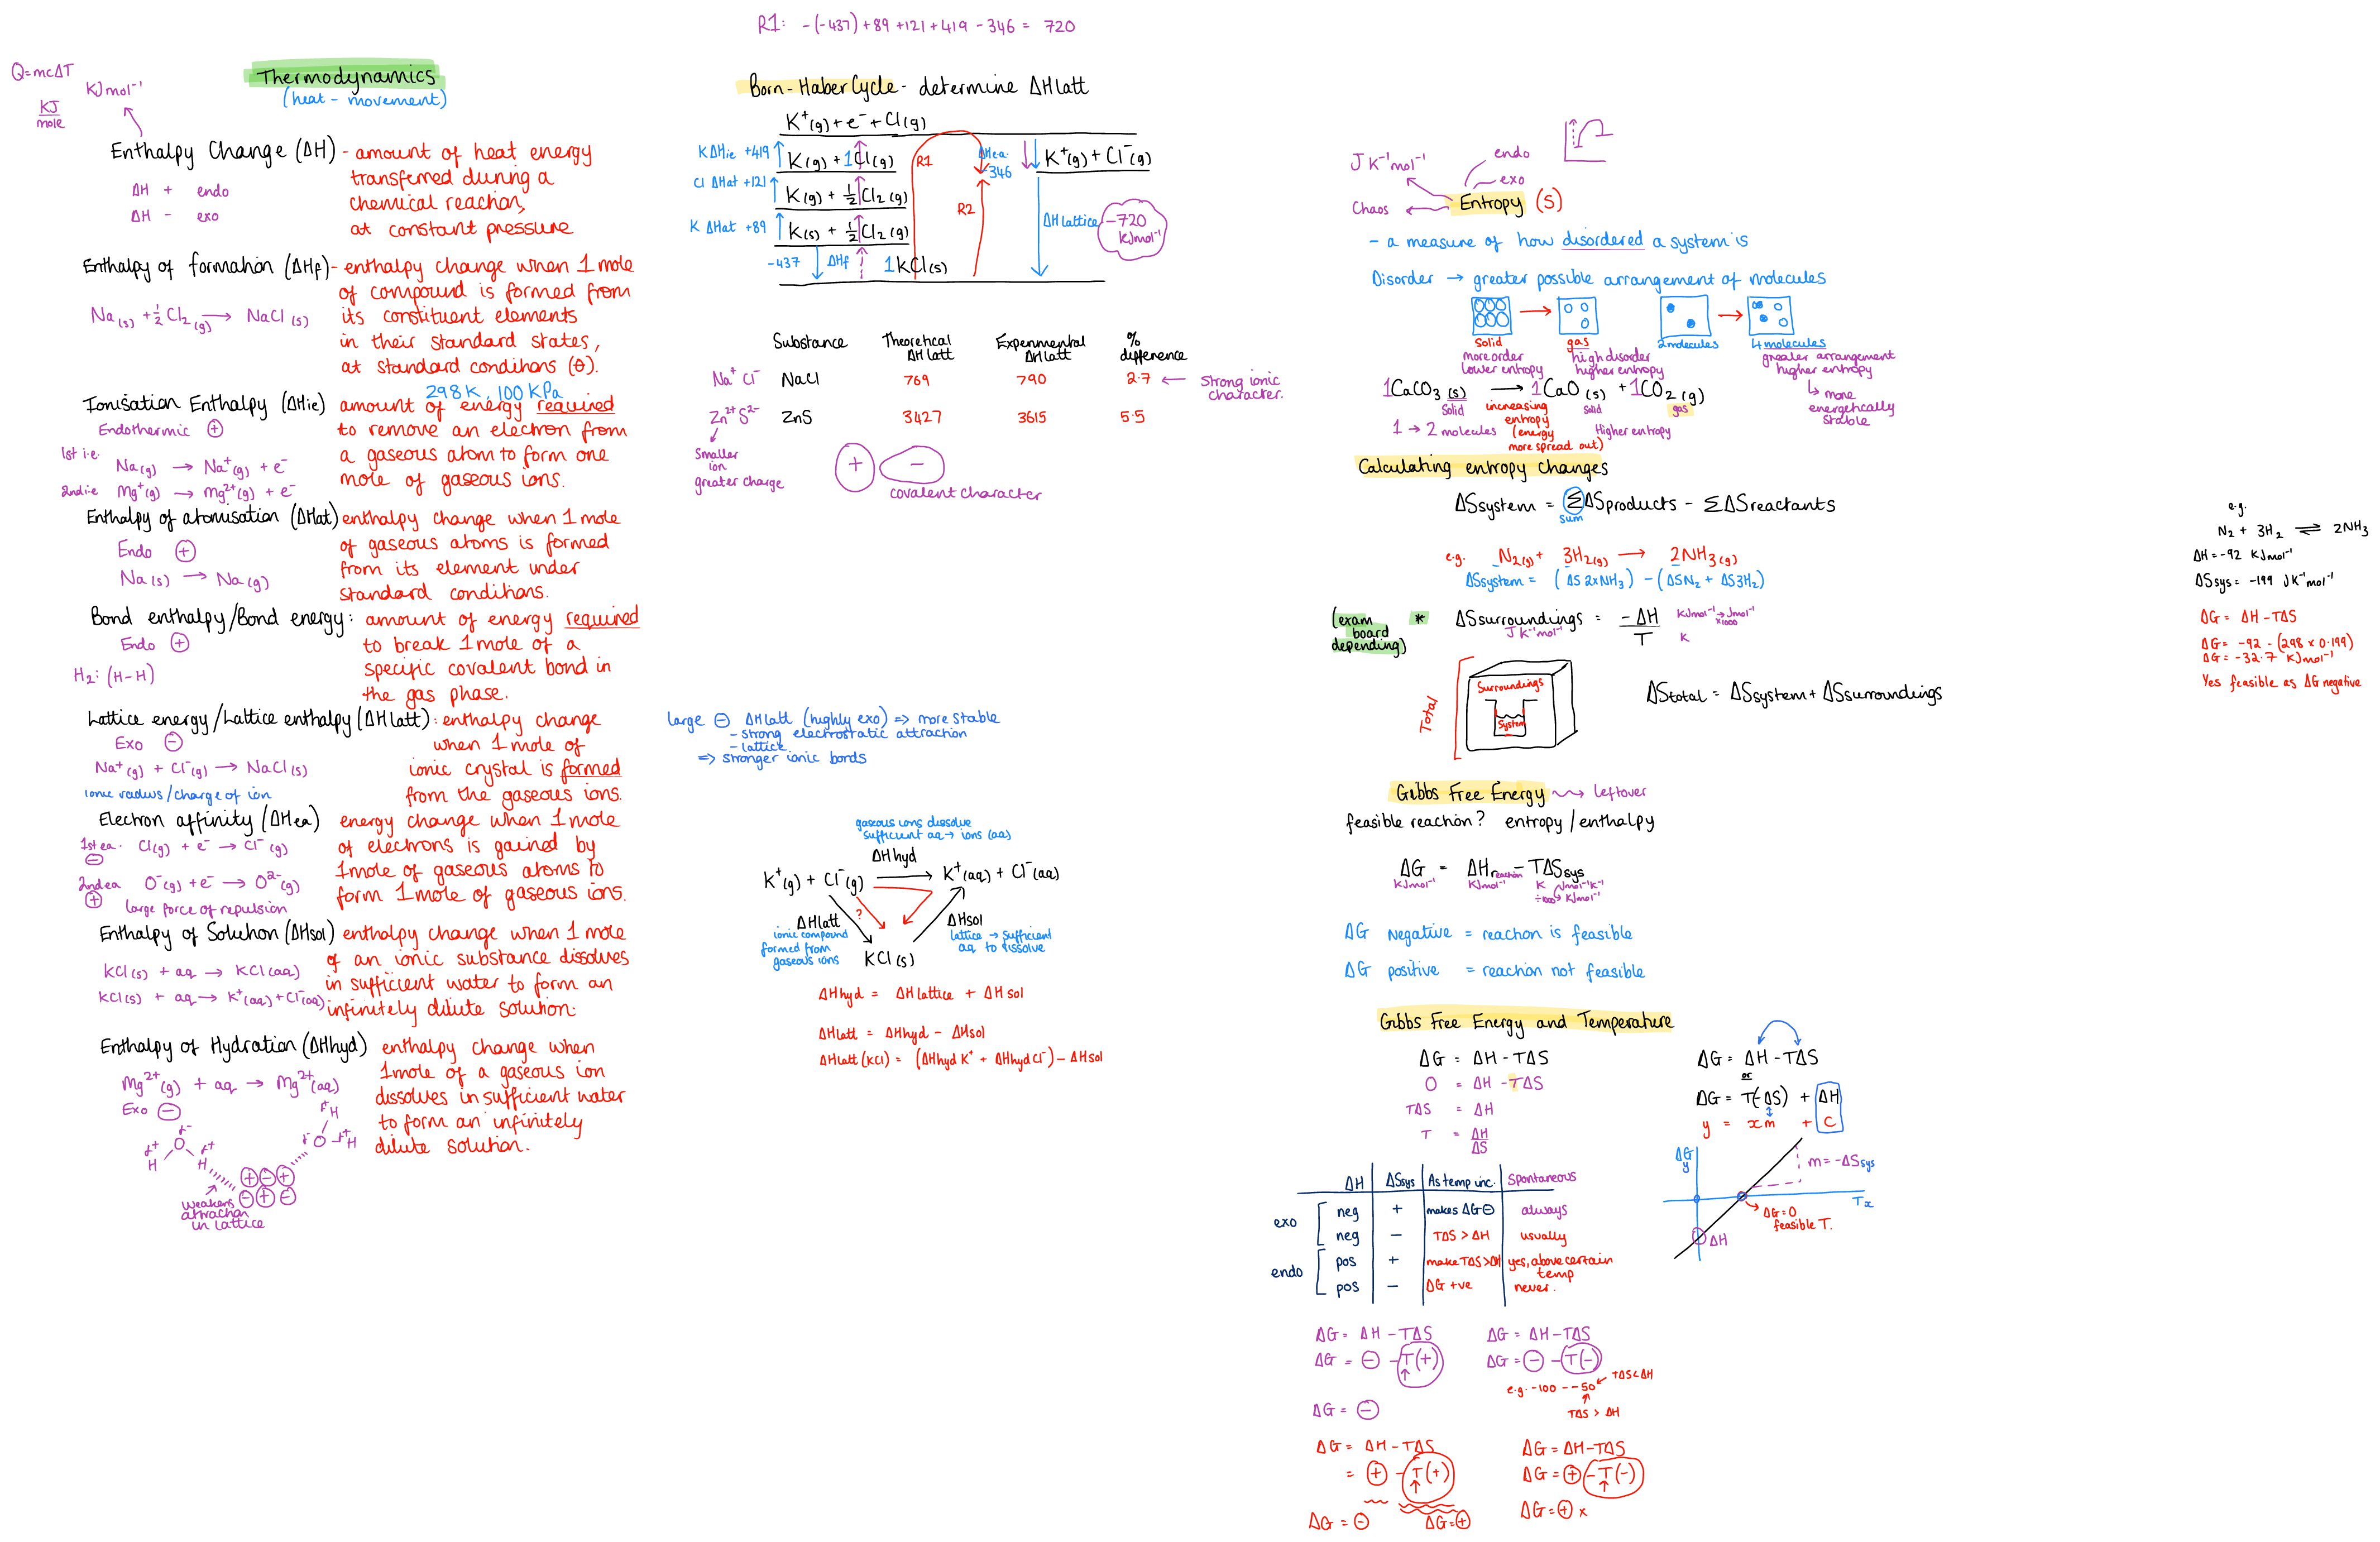 R1: -(-437) + 89 + 121 + 419 - 346 = 720
Q=mcΔT
KJ
mole
KJmol⁻¹
Thermodynamics
(heat - movement)
Enthalpy Change (ΔH) - amount of heat energy
transferred during a
chemical reaction,
at constant pressure
ΔH + endo
ΔH - exo
Enthalpy of formation (ΔHf) - enthalpy change when 1 mole
of compound is formed from
its constituent elements
in their standard states,
at standard conditions (Θ).
298K, 100 KPa
Na(s) + ½Cl₂(g) → NaCl(s)
Ionisation Enthalpy (ΔHie) amount of energy required
to remove an electron from
a gaseous atom to form one
mole of gaseous ions.
Endothermic ⊕
1st i.e. Na(g) → Na⁺(g) + e⁻
2nd i.e Mg⁺(g) → Mg²⁺(g) + e⁻
Enthalpy of atomisation (ΔHat) enthalpy change when 1 mole
of gaseous atoms is formed
from its element under
standard conditions.
Endo ⊕
Na(s) → Na(g)
Bond enthalpy/Bond energy: amount of energy required
to break 1 mole of a
specific covalent bond in
the gas phase.
Endo ⊕
H₂: (H-H)
Lattice energy/Lattice enthalpy (ΔHlatt): enthalpy change
when 1 mole of
ionic crystal is formed
from the gaseous ions.
Exo ⊖
Na⁺(g) + Cl⁻(g) → NaCl(s)
ionic radius/charge of ion
Electron affinity (ΔHea) energy change when 1 mole
of electrons is gained by
1mole of gaseous atoms to
form 1 mole of gaseous ions.
1st ea. Cl(g) + e⁻ → Cl⁻(g)
⊖
2nd ea O⁻(g) + e⁻ → O²⁻(g)
⊕ large force of repulsion
Enthalpy of Solution (ΔHsol) enthalpy change when 1 mole
of an ionic substance dissolves
in sufficient water to form an
infinitely dilute solution.
KCl(s) + aq → KCl(aq)
KCl(s) + aq → K⁺(aq) + Cl⁻(aq)
Enthalpy of Hydration (ΔHhyd) enthalpy change when
1mole of a gaseous ion
dissolves in sufficient water
to form an infinitely
dilute solution.
Mg²⁺(g) + aq → Mg²⁺(aq)
Exo ⊖
δ⁻
δ⁺ O δ⁺
H H
δ⁺H
δ⁻ O - δ⁺H
⊕⊖⊕
⊖⊕⊖
weakens
attraction
in lattice
Born-Haber Cycle - determine ΔHlatt
K⁺(g) + e⁻ + Cl(g)
K ΔHie +419 K(g) + 1Cl(g)
Cl ΔHat +121 K(g) + ½Cl₂(g)
K ΔHat +89 K(s) + ½Cl₂(g)
-437 ΔHf 1KCl(s)
R1
R2
ΔHea
-346
K⁺(g) + Cl⁻(g)
ΔHlattice -720
kJmol⁻¹
Substance Theoretical ΔHlatt Experimental ΔHlatt % difference
Na⁺Cl⁻ NaCl 769 790 2.7 ← Strong ionic
character.
Zn²⁺S²⁻ ZnS 3427 3615 5.5
Smaller
ion
greater charge
+ -
covalent character
large ⊖ ΔHlatt (highly exo) => more stable
- strong electrostatic attraction
- lattice
=> stronger ionic bonds
gaseous ions dissolve
sufficient aq → ions (aq)
ΔHhyd
K⁺(g) + Cl⁻(g) → K⁺(aq) + Cl⁻(aq)
?
ΔHlatt
ionic compound
formed from
gaseous ions
ΔHsol
lattice → sufficient
aq to dissolve
KCl(s)
ΔHhyd = ΔHlattice + ΔHsol
ΔHlatt = ΔHhyd - ΔHsol
ΔHlatt (KCl) = (ΔHhyd K⁺ + ΔHhyd Cl⁻) - ΔHsol
J K⁻¹mol⁻¹
endo
exo
Chaos
Entropy (S)
- a measure of how disordered a system is
Disorder → greater possible arrangement of molecules
Solid
more order
lower entropy
gas
high disorder
higher entropy
2 molecules
4 molecules
greater arrangement
higher entropy
↳ more
energetically
stable
1CaCO₃(s) → 1CaO(s) + 1CO₂(g)
Solid solid gas
increasing
entropy
(energy
more spread out)
1 → 2 molecules
Higher entropy
Calculating entropy changes
ΔSsystem = ΣΔSproducts - ΣΔSreactants
sum
e.g. N₂(g) + 3H₂(g) → 2NH₃(g)
ΔSsystem = (ΔS 2xNH₃) - (ΔSN₂ + ΔS3H₂)
(exam
board
depending)
* ΔSsurroundings = -ΔH
T
J K⁻¹mol⁻¹
KJmol⁻¹ → Jmol⁻¹
x1000
K
Total
Surroundings
System
ΔStotal = ΔSsystem + ΔSsurroundings
Gibbs Free Energy ⇝ leftover
feasible reaction? entropy/enthalpy
ΔG = ΔHreaction - TΔSsys
KJmol⁻¹ KJmol⁻¹ K Jmol⁻¹K⁻¹
÷1000 → KJmol⁻¹
ΔG Negative = reaction is feasible
ΔG positive = reaction not feasible
Gibbs Free Energy and Temperature
ΔG = ΔH - TΔS
0 = ΔH - TΔS
TΔS = ΔH
T = ΔH
ΔS
ΔG = ΔH - TΔS
or
ΔG = T(-ΔS) + ΔH
y = x m + c
ΔG
y
m = -ΔSsys
T x
ΔG=0
feasible T.
ΔH
ΔH ΔSsys As temp inc. Spontaneous
exo
neg + makes ΔG⊖ always
neg - TΔS > ΔH usually
endo
pos + make TΔS>ΔH yes, above certain
temp
pos - ΔG +ve never.
ΔG = ΔH - TΔS
ΔG = ⊖ - T(+)
↑
ΔG = ⊖
ΔG = ΔH - TΔS
ΔG = ⊖ - T(-)
e.g. -100 - -50 ← TΔS<ΔH
↑
TΔS > ΔH
ΔG = ΔH - TΔS
= ⊕ - T(+)
↑
ΔG = ⊖ ΔG=⊕
ΔG = ΔH - TΔS
ΔG = ⊕ - T(-)
↑
ΔG = ⊕ x
e.g.
N₂ + 3H₂ ⇌ 2NH₃
ΔH = -92 KJmol⁻¹
ΔSsys = -199 JK⁻¹mol⁻¹
ΔG = ΔH - TΔS
ΔG = -92 - (298 x 0.199)
ΔG = -32.7 KJmol⁻¹
Yes feasible as ΔG negative